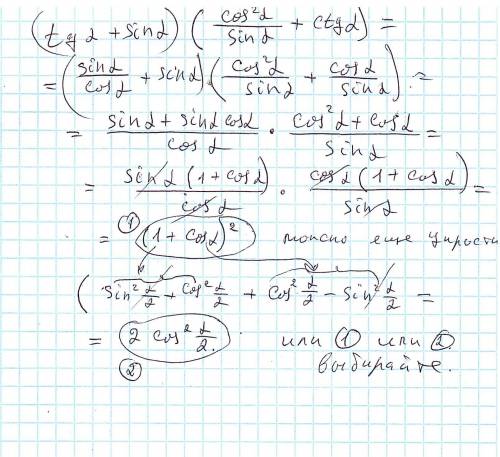 (tg α + sin α) (cos²α / sin α + ctg α) =
= (sin α / cos α + sin α) · (cos²α / sin α + cos α / sin α) =
= sin α + sin α cos α / cos α · cos²α + cos α / sin α =
= sin α (1 + cos α) / cos α · cos α (1 + cos α) / sin α =
= ① (1 + cos α)² можно еще упрости
(sin² α/2 + cos² α/2 + cos² α/2 − sin² α/2 =
= 2 cos² α/2. или ① или ②
② выбирайте.